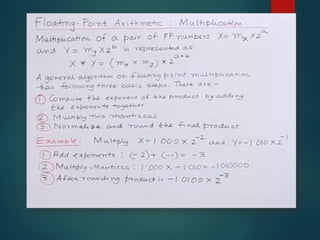 Floating-Point Arithmetic : Multiplication
Multiplication of a pair of FP numbers X = mₓ X 2ᵃ
and Y = mᵧ X 2ᵇ is represented as
X * Y = (mₓ × mᵧ) * 2ᵃ⁺ᵇ
A general algorithm on floating point multiplication
has following three basic steps. There are -
① Compute the exponent of the product by adding
the exponents together
② Multiply two mantissas
③ Normalize and round the final product
Example: Multiply X = 1·000 × 2⁻² and Y = -1·010 X 2⁻¹
① Add exponents : (-2) + (-1) = -3
② Multiply Mantissa : 1·000 X -1·010 = -1·010000
③ After rounding product is -1·0100 X 2⁻³